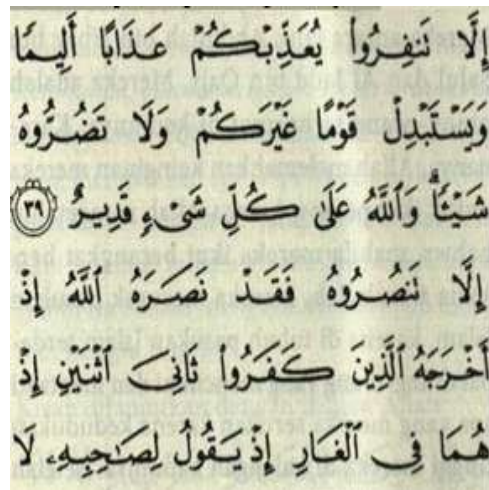 إِلَّا تَنفِرُوا۟ يُعَذِّبْكُمْ عَذَابًا أَلِيمًا
وَيَسْتَبْدِلْ قَوْمًا غَيْرَكُمْ وَلَا تَضُرُّوهُ
شَيْـًٔا ۗ وَٱللَّهُ عَلَىٰ كُلِّ شَىْءٍ قَدِيرٌ ٣٩
إِلَّا تَنصُرُوهُ فَقَدْ نَصَرَهُ ٱللَّهُ إِذْ
أَخْرَجَهُ ٱلَّذِينَ كَفَرُوا۟ ثَانِىَ ٱثْنَيْنِ إِذْ
هُمَا فِى ٱلْغَارِ إِذْ يَقُولُ لِصَـٰحِبِهِۦ لَا